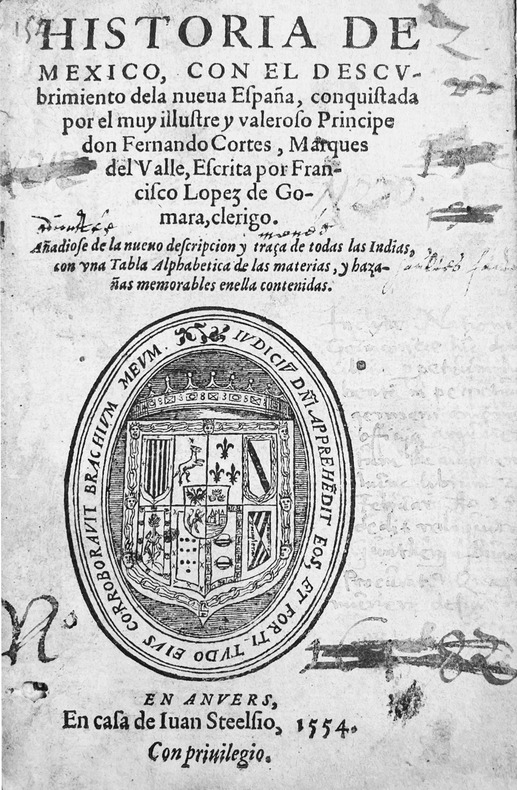 HISTORIA DE
MEXICO, CON EL DESCV-
brimiento dela nueua España, conquistada
por el muy illustre y valeroso Principe
don Fernando Cortes, Marques
del Valle, Escrita por Fran-
cisco Lopez de Go-
mara, clerigo.
Añadiose de la nueuo descripcion y traça de todas las Indias,
con vna Tabla Alphabetica de las materias, y haza-
ñas memorables enella contenidas.
IVDICIV DÑI APPREHĒDIT EOS, ET FORTITVDO EIVS CORROBORAVIT BRACHIVM MEVM.
Nº
EN ANVERS,
En casa de Iuan Steelsio, 1554.
Con priuilegio.